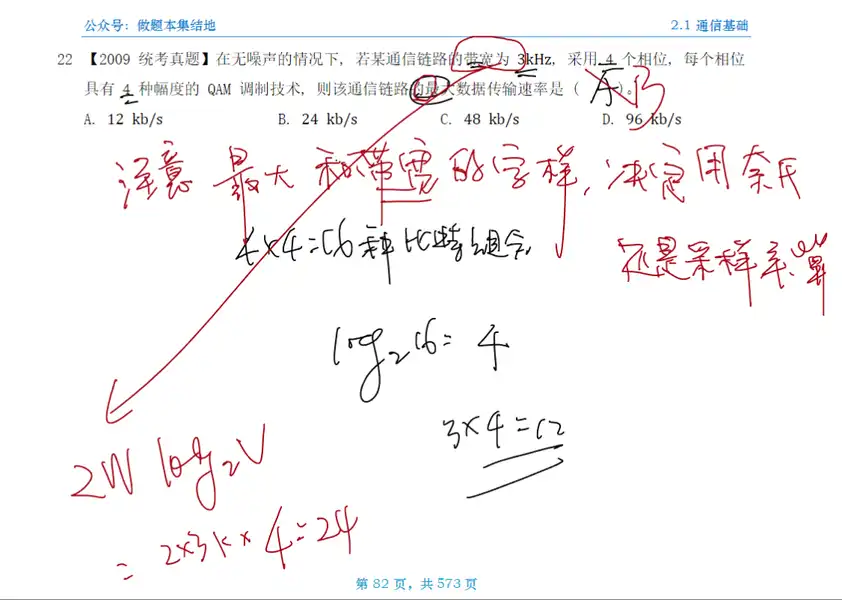 公众号：做题本集结地 2.1 通信基础
22 【2009 统考真题】在无噪声的情况下，若某通信链路的带宽为 3kHz，采用 4 个相位，每个相位
具有 4 种幅度的 QAM 调制技术，则该通信链路的最大数据传输速率是（ ）。B
A. 12 kb/s B. 24 kb/s C. 48 kb/s D. 96 kb/s
注意 最大 和带宽的字样，决定用奈氏
还是采样率算
4×4=16种比特组合
log₂16=4
3×4=12
2W log₂V
=2×3k×4=24
第 82 页，共 573 页